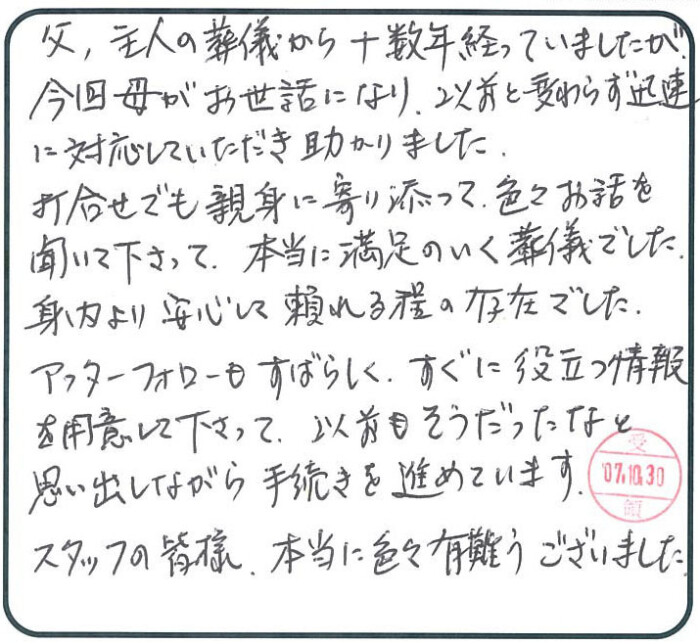 父,主人の葬儀から十数年経っていましたが、
今回母がお世話になり、以前と変わらず迅速
に対応していただき助かりました。
打合せでも親身に寄り添って、色々お話を
聞いて下さって、本当に満足のいく葬儀でした。
身内より安心して頼れる程の存在でした。
アフターフォローもすばらしく、すぐに役立つ情報
を用意して下さって、以前もそうだったなと
思い出しながら手続きを進めています。
受
'07.10.30
領
スタッフの皆様、本当に色々有難うございました。